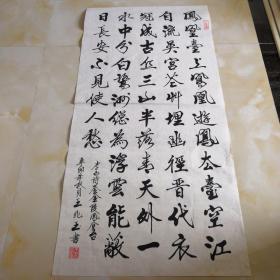 鳳凰臺上鳳凰遊鳳去臺空江
自流吳宮花艸埋幽徑晉代衣
冠成古丘三山半落青天外一
水中分白鷺洲總為浮雲能蔽
日長安不見使人愁
李白詩登金陵鳳凰台
年秋月王書